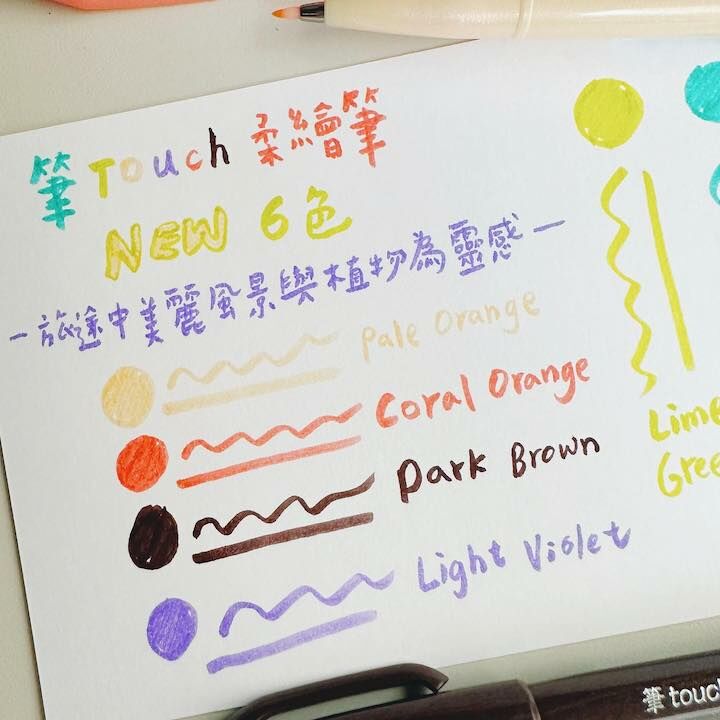 筆Touch 柔繪筆
NEW 6色
－旅途中美麗風景與植物為靈感－
Pale Orange
Coral Orange
Dark Brown
Light Violet
Lime
Gree
筆touch